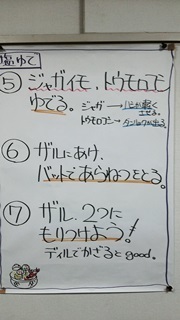 塩ゆで
⑤ ジャガイモ、トウモロコシ
ゆでる。
ジャガ→
トウモロコシ→
⑥ ザルにあけ、
バットであらねつをとる。
⑦ ザル、2つに
もりつけよう!
ディルでかざるとgood。